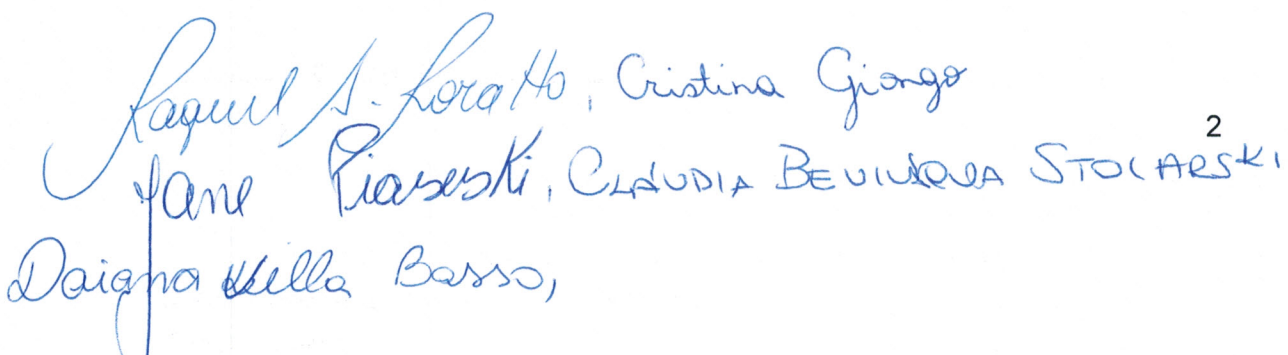 Raquel S. Loratto, Cristina Giongo
2
Jane Piaseski, CLÁUDIA BEVILÁQUA STOLARSKI
Daiana Villa Basso,